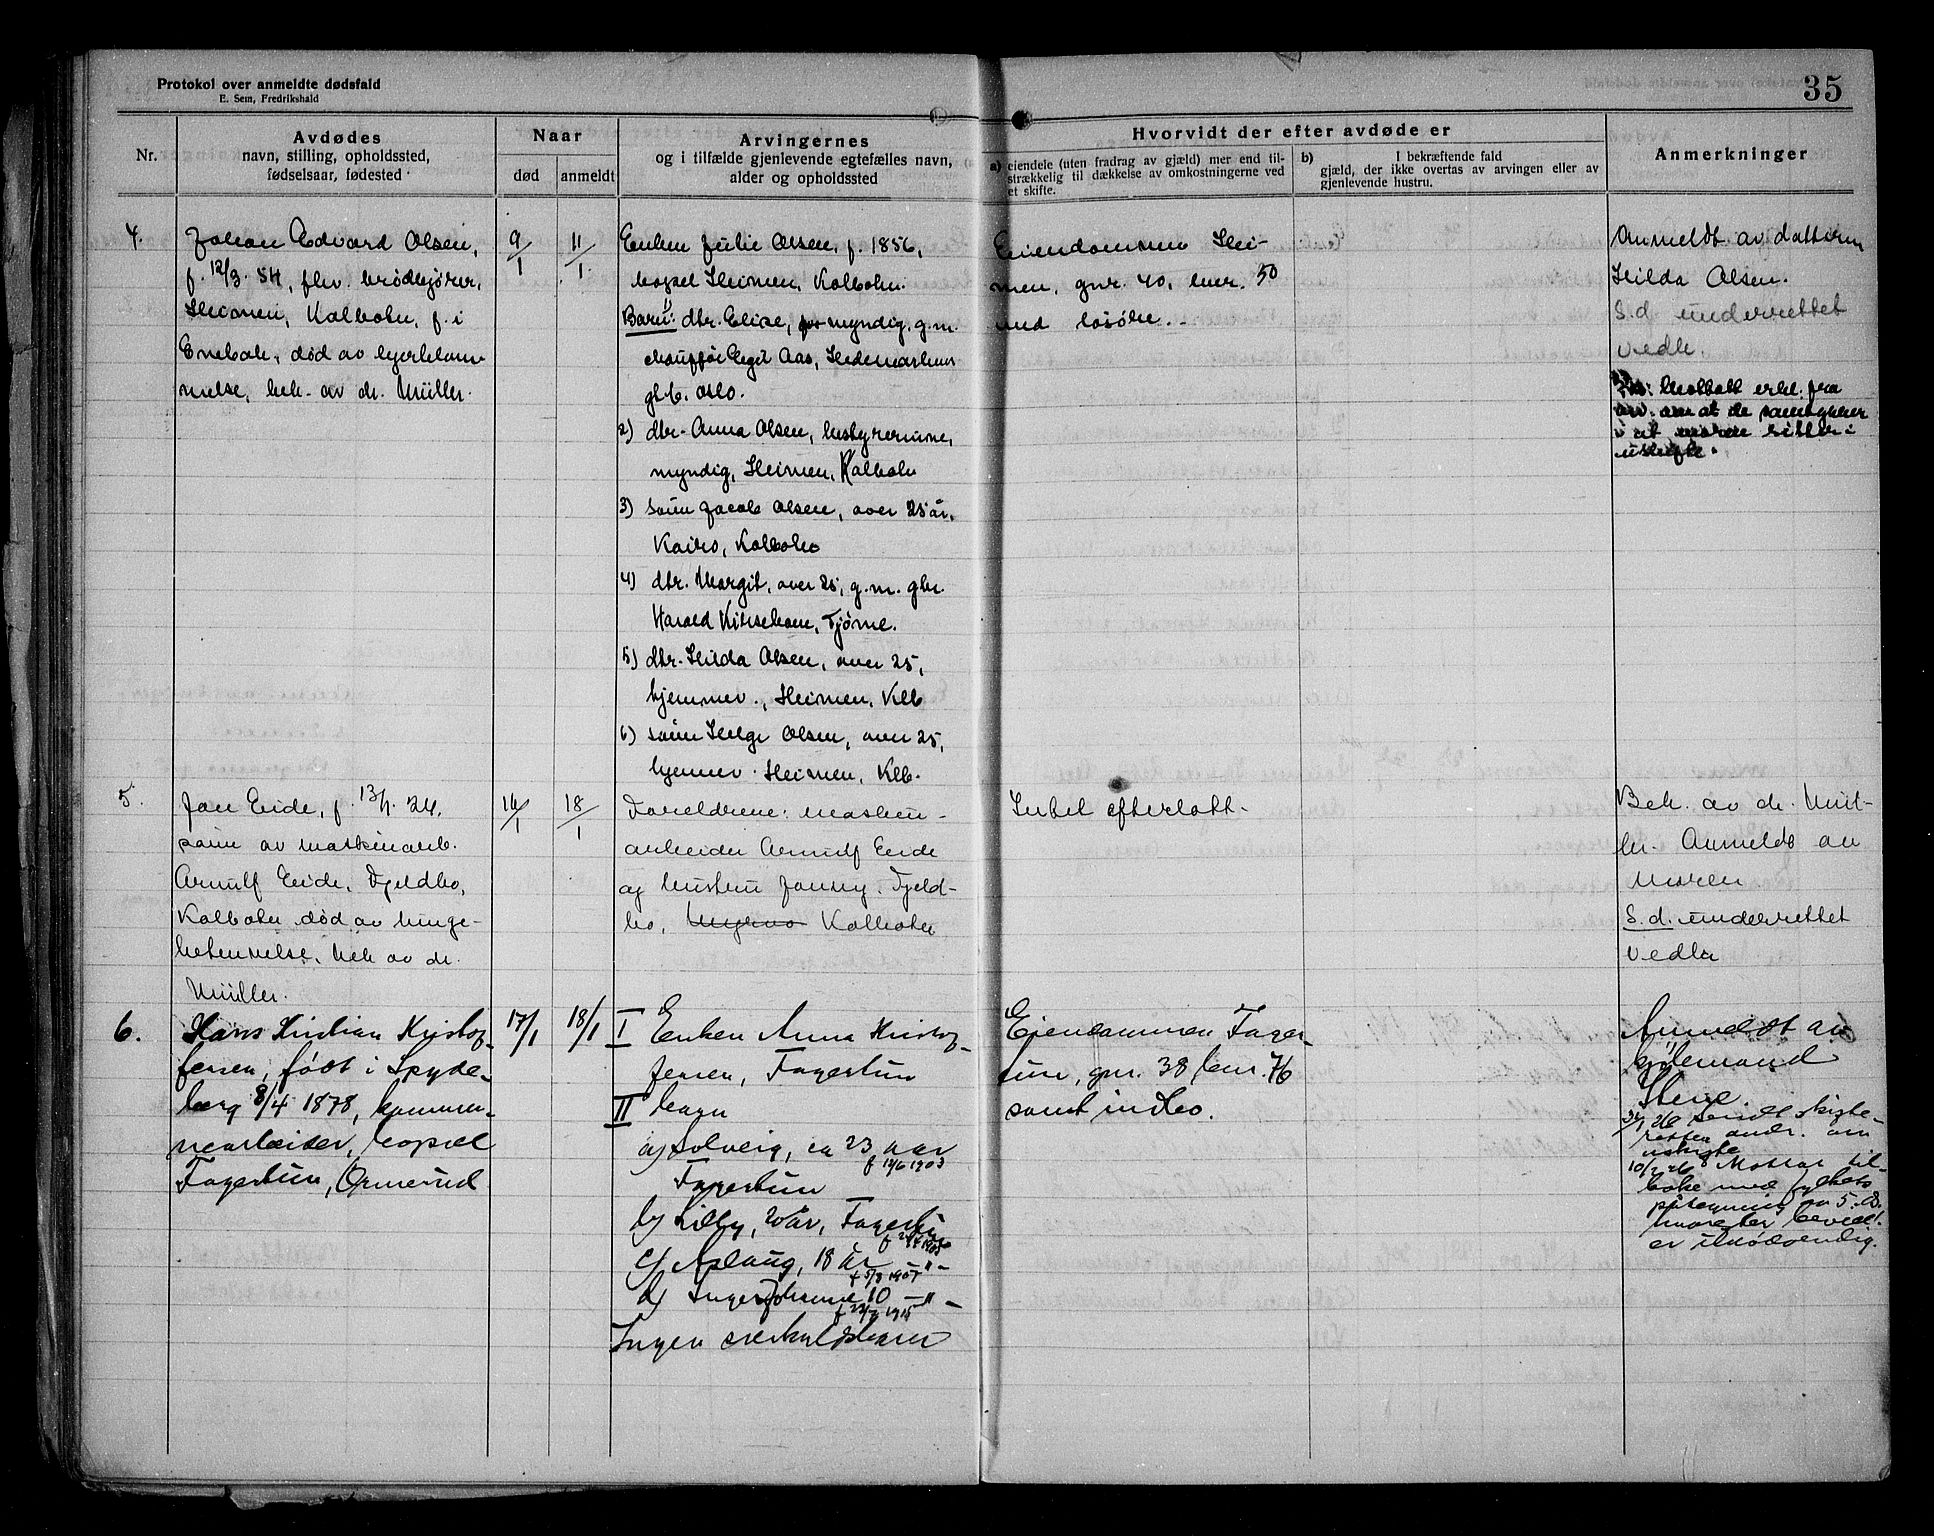 Protokol over anmeldte dødsfald
E. Sem, Fredrikshald
35
Nr.
Avdødes
navn, stilling, opholdssted,
fødselsaar, fødested
Naar
død
anmeldt
Arvingernes
og i tilfælde gjenlevende egtefælles navn,
alder og opholdssted
Hvorvidt der efter avdøde er
a) eiendele (uten fradrag av gjæld) mer end til-
strækkelig til dækkelse av omkostningerne ved
et skifte.
b) I bekræftende fald
gjæld, der ikke overtas av arvingen eller av
gjenlevende hustru.
Anmerkninger
4.
Johan Edvard Olsen,
f. 12/3. 54, fhv. brødkjører,
Heimen, Kolbotn, f. i
Enebak, død av hjertelam-
melse, bek. av dr. Müller.
9/1
11/1
Enken Julie Olsen, f. 1856,
bopæl Heimen, Kolbotn.
Barn: 1) dtr. Elise, myndig. g.m.
chauffør Aas, Hedemarkens
gt. 6. Oslo.
2) dtr. Anna Olsen, husbyrerinne,
myndig, Heimen, Kolbotn
3) sønn Jacob Olsen, over 25 år,
Kairo, Kolbotn
4) dtr. Margit, over 25, g.m. gbr.
Harald Kirsebom, Tjøme.
5) dtr. Hilda Olsen, over 25,
hjemmev., Heimen, Klb
6) sønn Helge Olsen, over 25,
hjemmev. Heimen, Klb.
Eiendommen Hei-
men, gnr. 40, bnr. 50
med løsøre.
Anmeldt av datteren
Hilda Olsen.
S.d. underrettet
vedk.
Mottatt erkl. fra
arv. om at de samtykker
i at moren sitter i
uskifte.
5.
Jan Eide, f. 13/1. 24.
sønn av maskinarb.
Arnulf Eide, Fjeldbo,
Kolbotn død av lunge-
betennelse, bek av dr.
Müller.
16/1
18/1
Foreldrene: maskin-
arbeider Arnulf Eide
og hustru Jenny, Fjeld-
bo, Kolbotn
Intet efterlatt.
Bek. av dr. Mül-
ler. Anmeldt av
Moren
S.d. underrettet
vedk
6.
Hans Kristian Kristof-
fersen, født i Spyde-
berg 8/4 1878, kommu-
nearbeider, bopæl
Fagertun, Ormerud
17/1
18/1
I Enken Anna Kristof-
fersen, Fagertun
II barn
a) Solveig, ca 23 aar
f 12/6 1903
Fagertun
b) Lilly, 20 år, Fagertun
c) Aslaug, 18 år – " –
f 5/8 1907
d) Inger Johanne 10 – " –
Ingen særkuldsbarn
Eiendommen Fager-
tun, gnr. 38 bnr. 76
samt indbo.
Anmeldt av
kjølemand
Stene.
sendt skifte-
retten andr. om
uskifte
10/2 26 Mottat til-
bake med fylkets
påtegning av 5. ds.
hvorefter bevill.
er unødvendig.